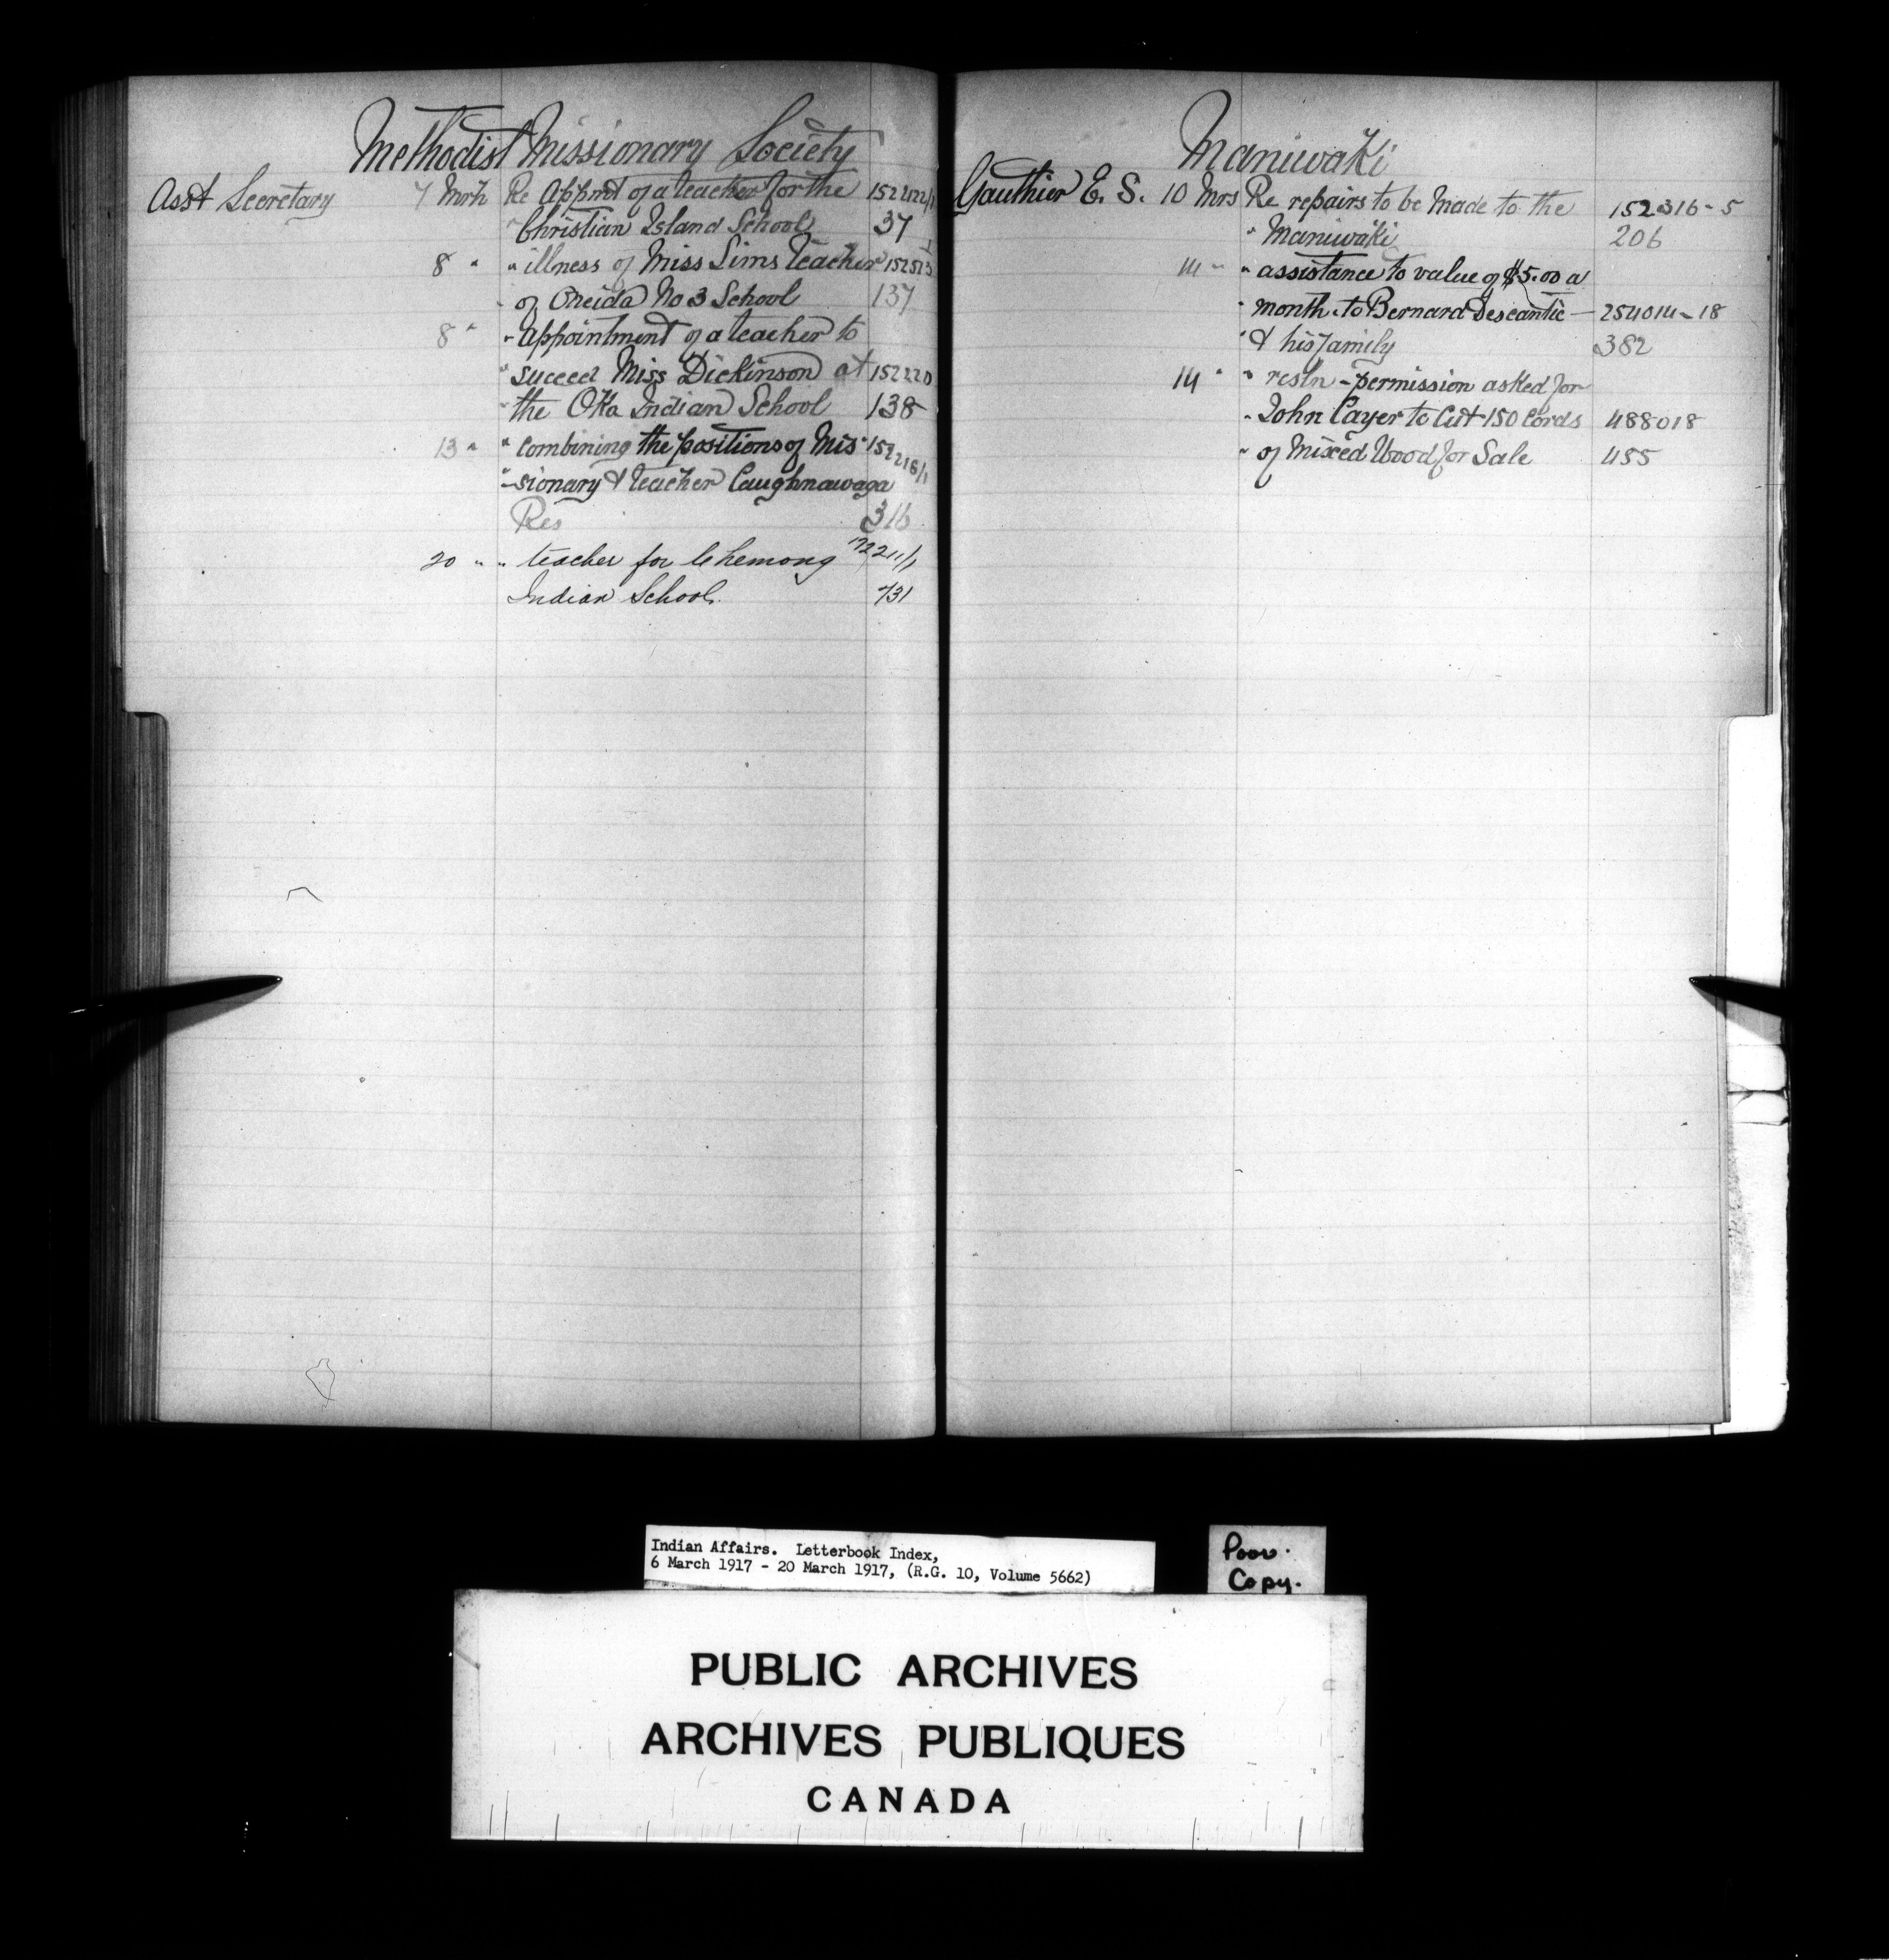 Methodist Missionary Society
Asst Secretary 7 Mrh Re Appmt of a teacher for the
" Christian Island School 37
8 " " illness of Miss Sims Teacher
" of Oneida No 3 School 137
8 " " Appointment of a teacher to
" succeed Miss Dickinson at 152220
" the Oka Indian School 138
13 " " Combining the positions of Mis- 152218/1
" -sionary & teacher Caughnawaga
Res 316
20 " " teacher for Chemong
Indian School. 731
Maniwaki
Gauthier E. S. 10 Mrs Re repairs to be Made to the 152316-5
" Maniwaki 206
14 " " assistance to value of $5.00 a
" month to Bernard Descantie — 254014-18
" & his family 382
14 " " restn - permission asked for
" John Cayer to Cut 150 Cords 488018
" of Mixed Wood for Sale 455
Indian Affairs. Letterbook Index,
6 March 1917 - 20 March 1917, (R.G. 10, Volume 5662)
Poor.
Copy.
PUBLIC ARCHIVES
ARCHIVES PUBLIQUES
CANADA